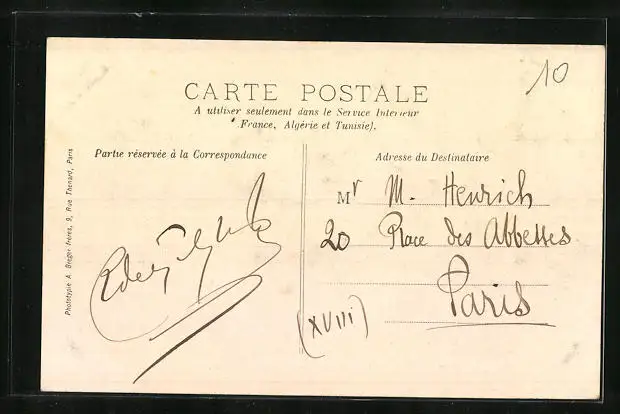 10
CARTE POSTALE
A utiliser seulement dans le Service Interieur
(France, Algérie et Tunisie).
Partie réservée à la Correspondance
Adresse du Destinataire
Mr M. Henrich
20 Place des Abbesses
Paris
(XVIII)
Phototypie A. Breger Frères, 9, Rue Thénard, Paris